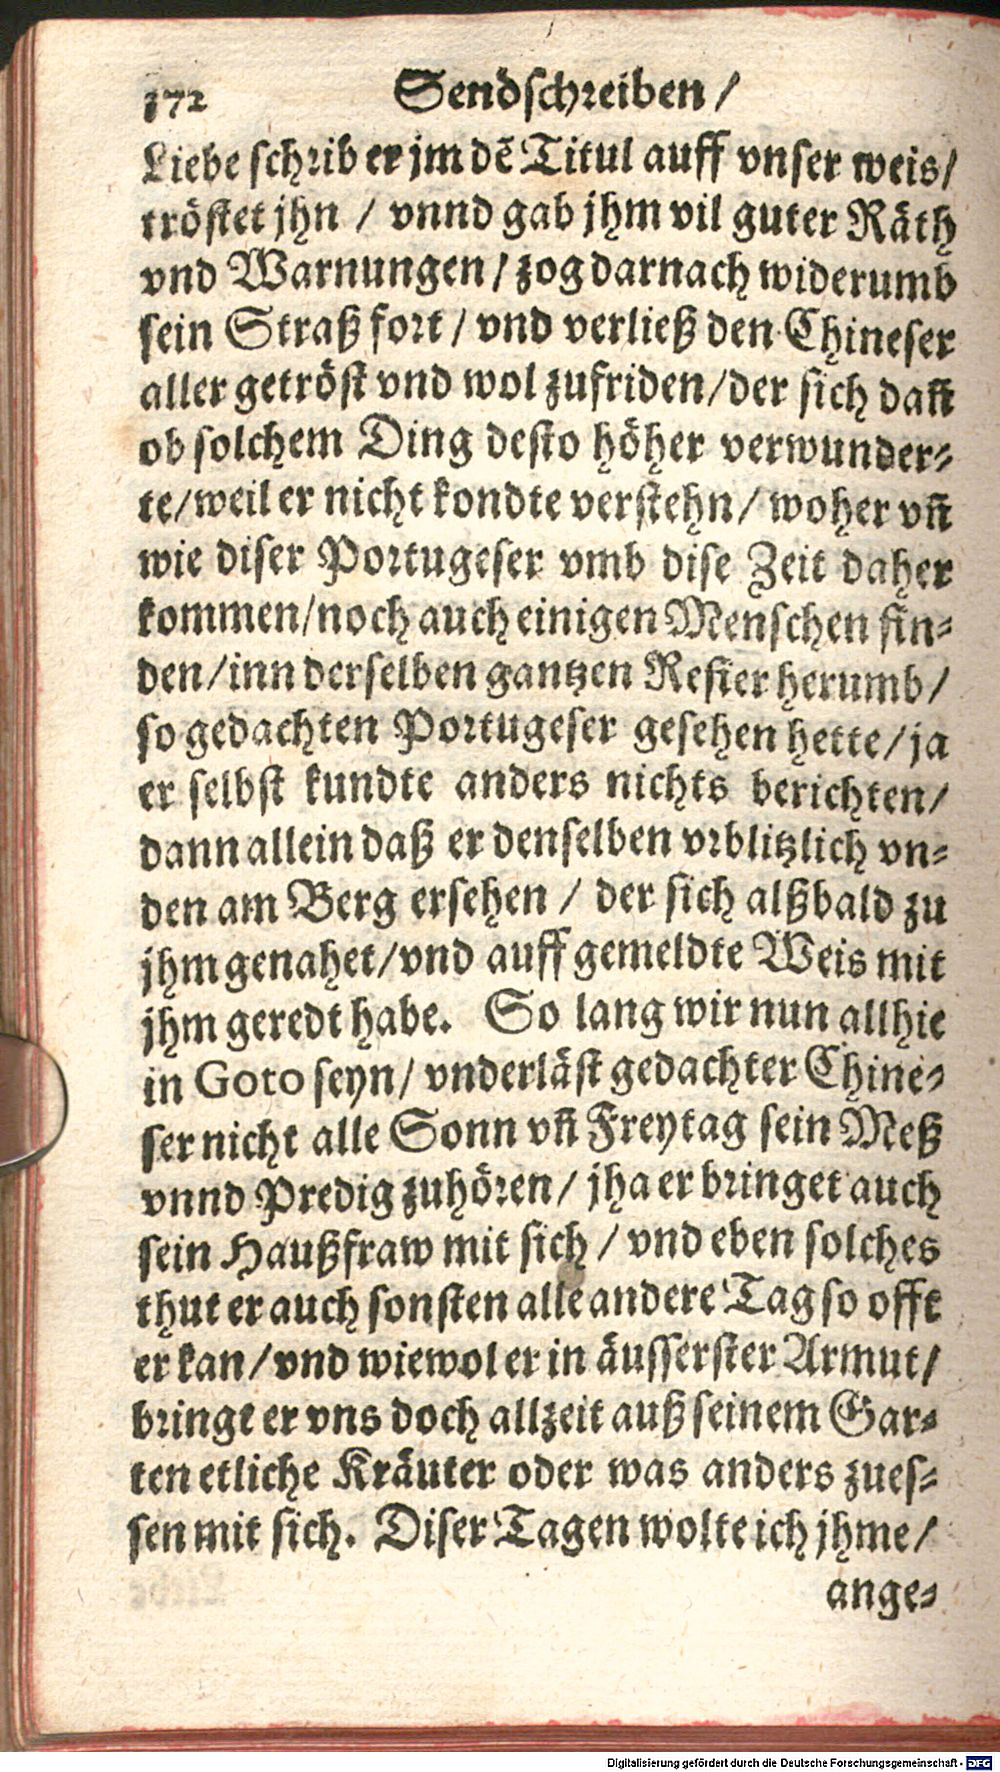 172 Sendschreiben /
Liebe schrib er jm dē Titul auff vnser weis/
tröstet jhn / vnnd gab jhm vil guter Räth
vnd Warnungen / zog darnach widerumb
sein Straß fort / vnd verließ den Chineser
aller getröst vnd wol zufriden/der sich dañ
ob solchem Ding desto höher verwunder-
te/weil er nicht kondte verstehn/ woher vñ
wie diser Portugeser vmb dise Zeit daher
kommen/noch auch einigen Menschen fin-
den/inn derselben gantzen Refier herumb/
so gedachten Portugeser gesehen hette/ja
er selbst kundte anders nichts berichten/
dann allein daß er denselben vrblitzlich vn-
den am Berg ersehen / der sich alßbald zu
jhm genahet/vnd auff gemeldte Weis mit
jhm geredt habe. So lang wir nun allhie
in Goto seyn/ vnderläst gedachter Chine-
ser nicht alle Sonn vñ Freytag sein Meß
vnnd Predig zuhören/ jha er bringet auch
sein Haußfraw mit sich / vnd eben solches
thut er auch sonsten alle andere Tag so offt
er kan/vnd wiewol er in äusserster Armut/
bringt er vns doch allzeit auß seinem Gar-
ten etliche Kräuter oder was anders zues-
sen mit sich. Diser Tagen wolte ich jhme/
ange-
Digitalisierung gefördert durch die Deutsche Forschungsgemeinschaft - DFG